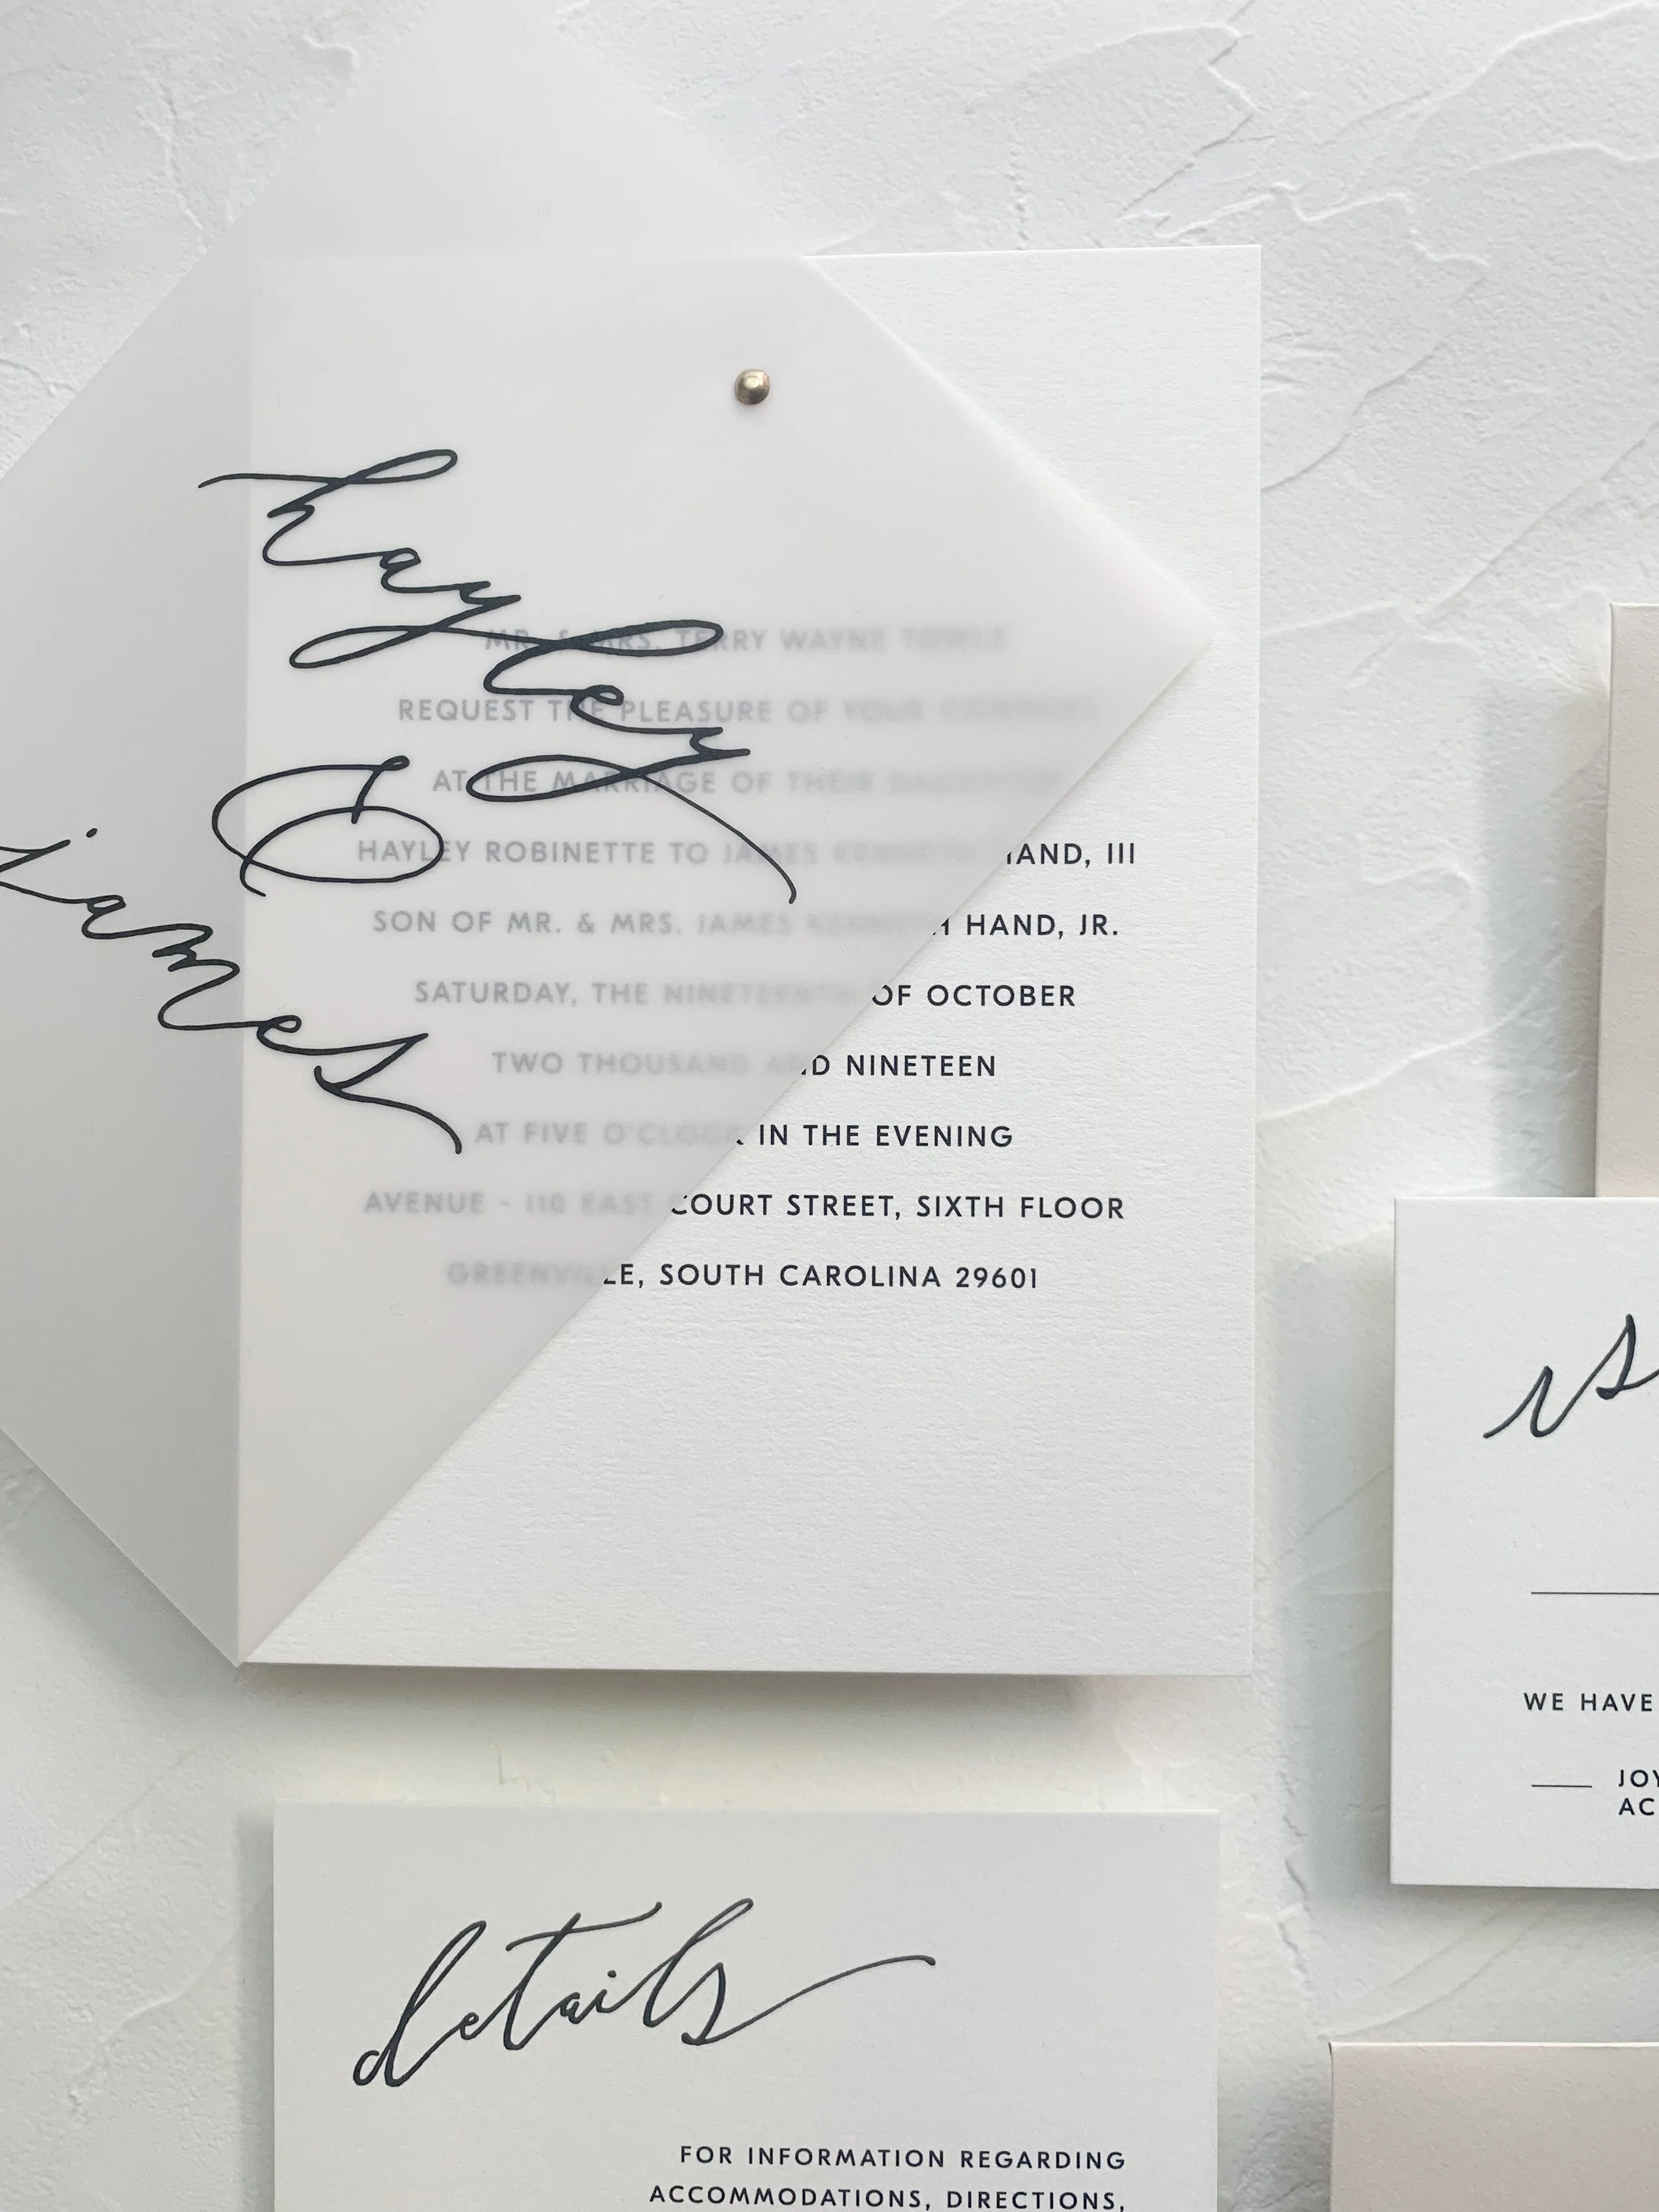 hayley
&
james
MR. & MRS. TERRY WAYNE
REQUEST THE PLEASURE OF YOUR
AT THE MARRIAGE OF THEIR DAUGHTER
HAYLEY ROBINETTE TO JAMES KENNETH HAND, III
SON OF MR. & MRS. JAMES KENNETH HAND, JR.
SATURDAY, THE NINETEENTH OF OCTOBER
TWO THOUSAND AND NINETEEN
AT FIVE O'CLOCK IN THE EVENING
AVENUE - 110 EAST COURT STREET, SIXTH FLOOR
GREENVILLE, SOUTH CAROLINA 29601
rs
WE HAVE
JOY
AC
details
FOR INFORMATION REGARDING
ACCOMMODATIONS, DIRECTIONS,